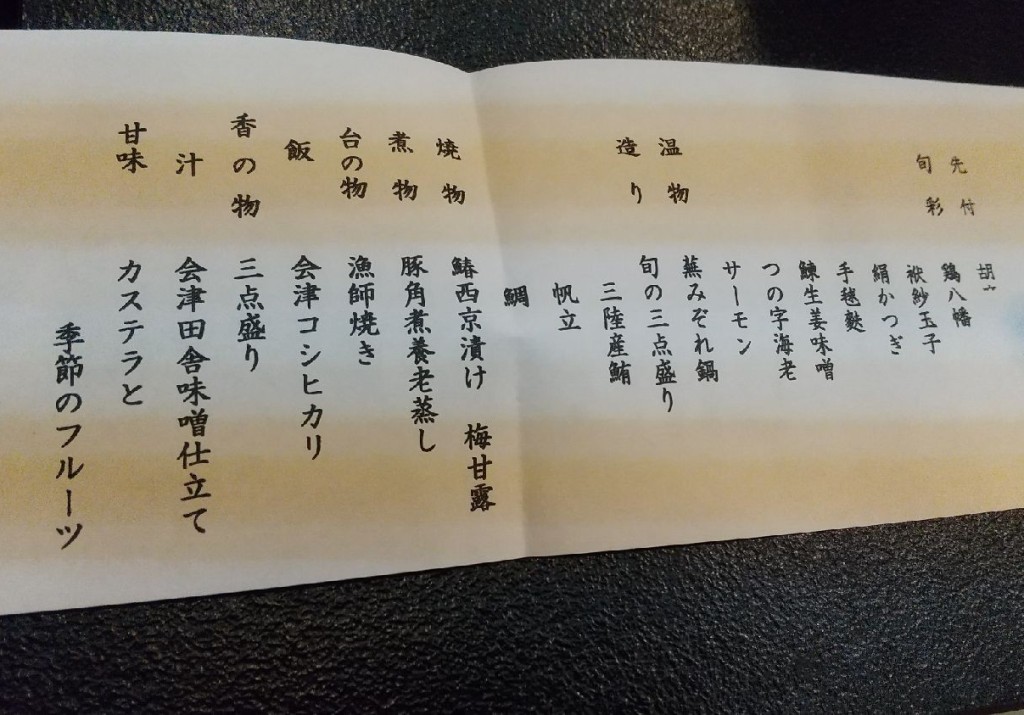 先付 胡
旬彩 鶏八幡
袱紗玉子
絹かつぎ
手毬麩
鰊生姜味噌
つの字海老
サーモン
温物 蕪みぞれ鍋
造り 旬の三点盛り
三陸産鮪
帆立
鯛
焼物 鰆西京漬け 梅甘露
煮物 豚角煮養老蒸し
台の物 漁師焼き
飯 会津コシヒカリ
香の物 三点盛り
汁 会津田舎味噌仕立て
甘味 カステラと
季節のフルーツ